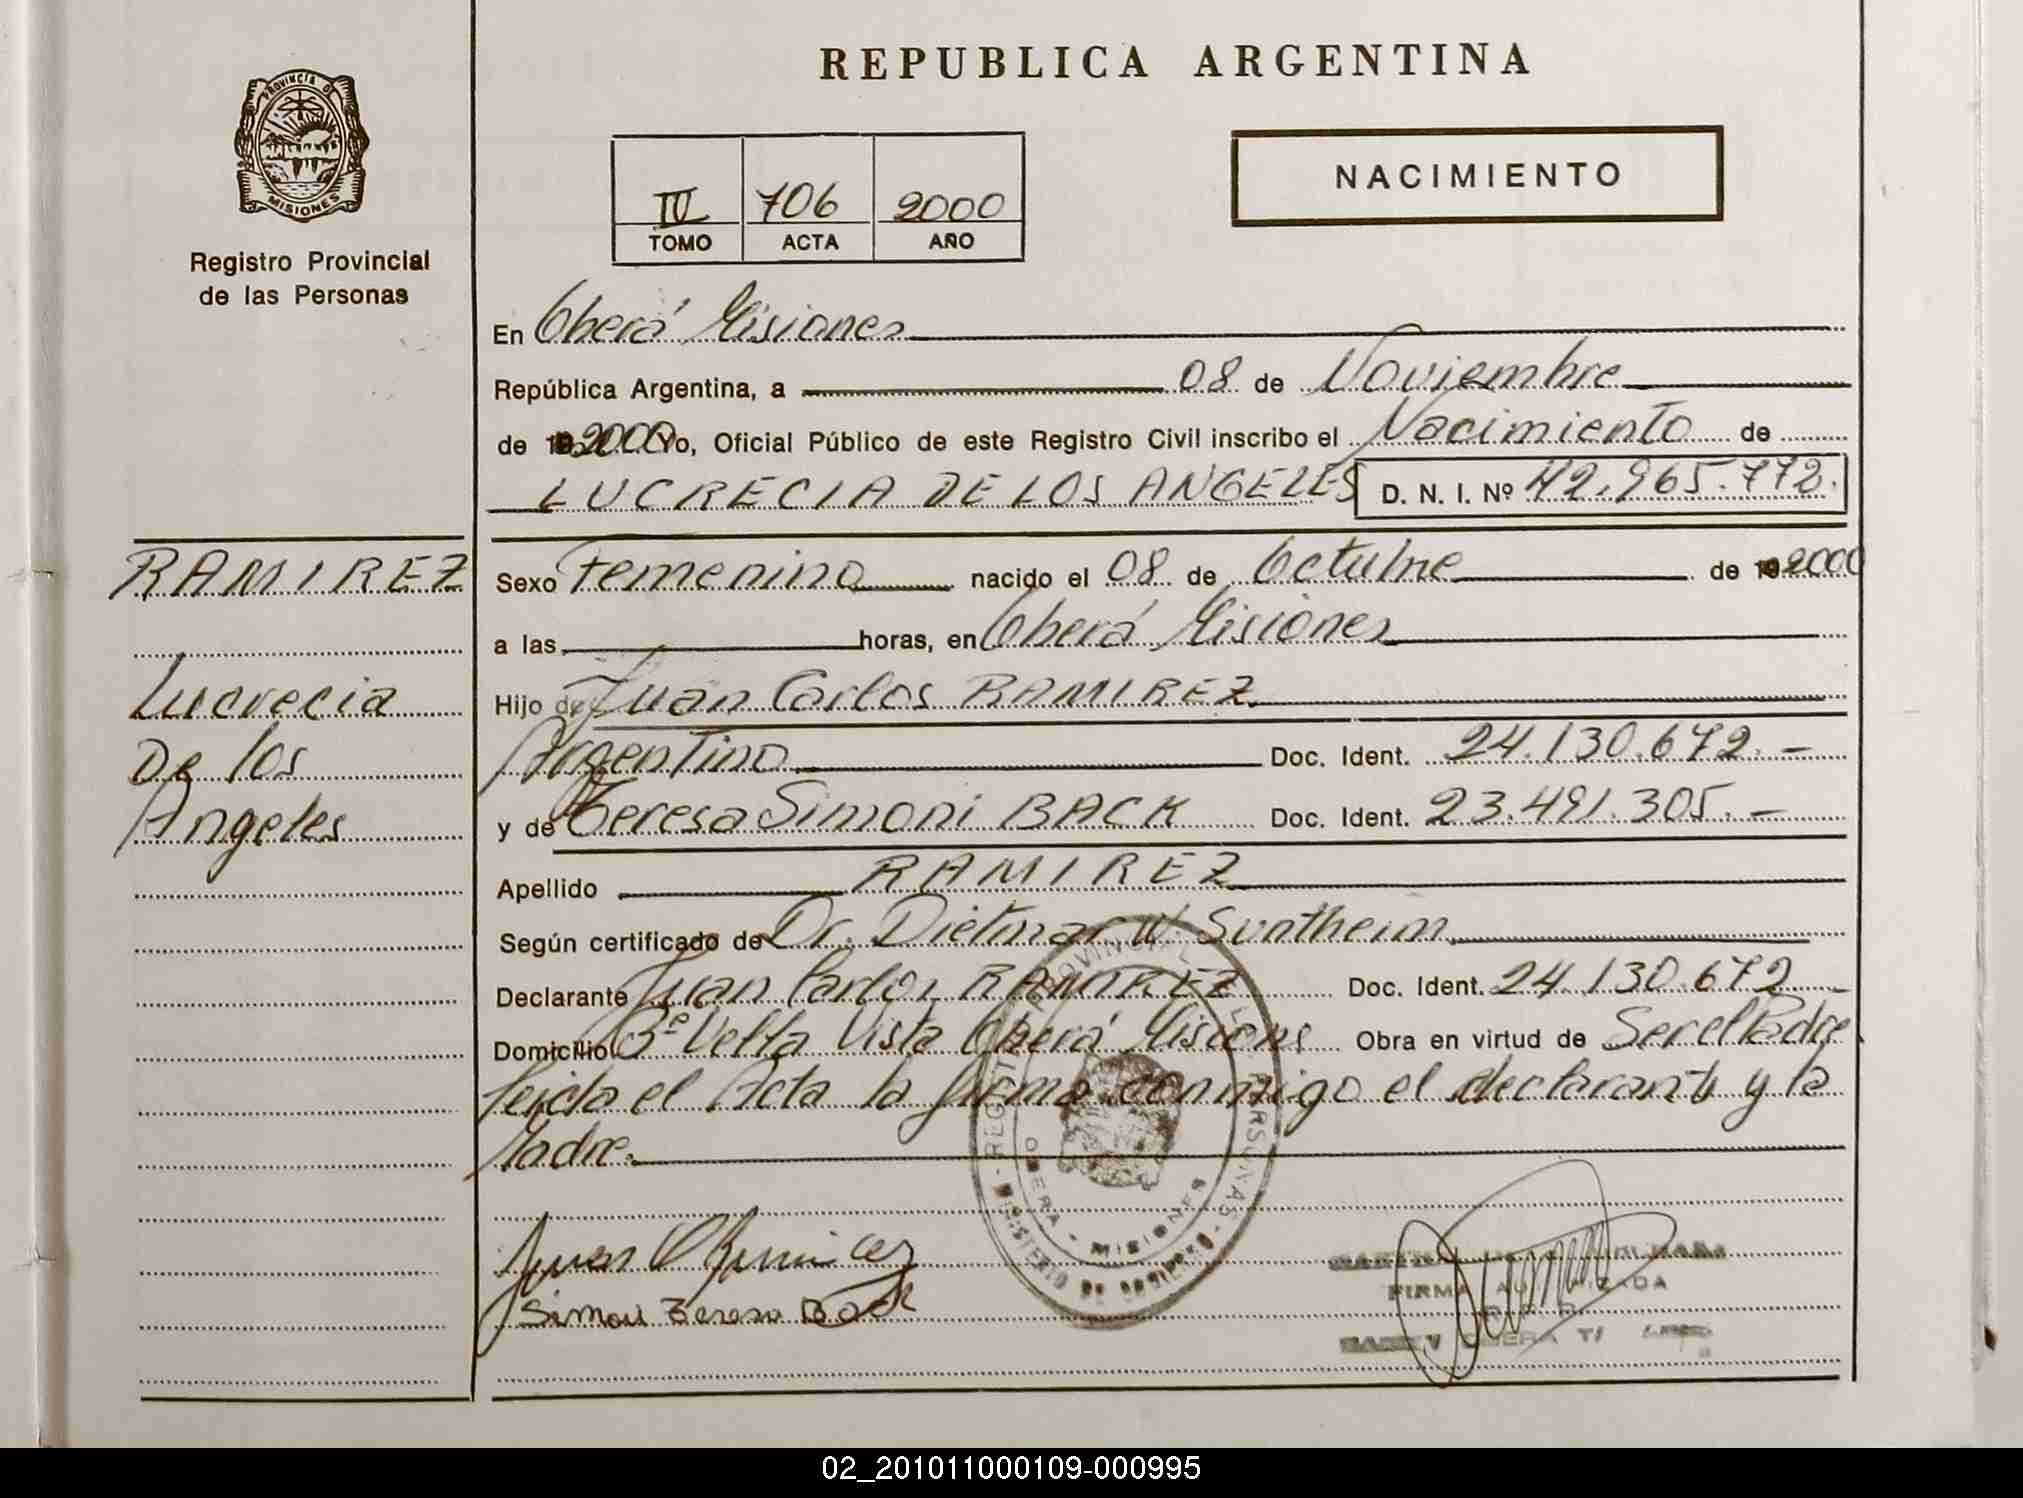 REPUBLICA ARGENTINA
PROVINCIA D
MISIONES
Registro Provincial
de las Personas
706 2000
TOMO ACTA AÑO
NACIMIENTO
En Oberá Misiones
República Argentina, a 08 de Noviembre
de 19 2000 Yo, Oficial Público de este Registro Civil inscribo el Nacimiento de
LUCRECIA DE LOS ANGELES D. N. I. Nº 42.965.772.
RAMIREZ
Lucrecia
De los
Angeles
Sexo Femenino nacido el 08 de Octubre de 19 2000
a las horas, en Oberá Misiones
Hijo de Juan Carlos RAMIREZ
Argentino Doc. Ident. 24.130.672.-
y de Teresa Simoni BACK Doc. Ident. 23.491.305.-
Apellido RAMIREZ
Según certificado de Dr. Dietmar W. Suntheim
Declarante Juan Carlos RAMIREZ Doc. Ident. 24.130.672
Domicilio Bº Vella Vista Oberá Misions Obra en virtud de Ser el Padre
leida el Acta la firma conmigo el declarante y la
Madre.
MINISTERIO DE GOBIERNO
OBERA - MISIONES
Simoni Teresa Back
FIRMA AUTORIZADA
02_201011000109-000995